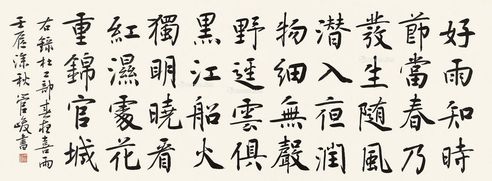 好雨知時
節當春乃
發生随風
潜入夜潤
物細無聲
野逕雲俱
黑江船火
獨明曉看
紅濕處花
重錦官城
右録杜工部春夜喜雨
壬辰深秋管峻書